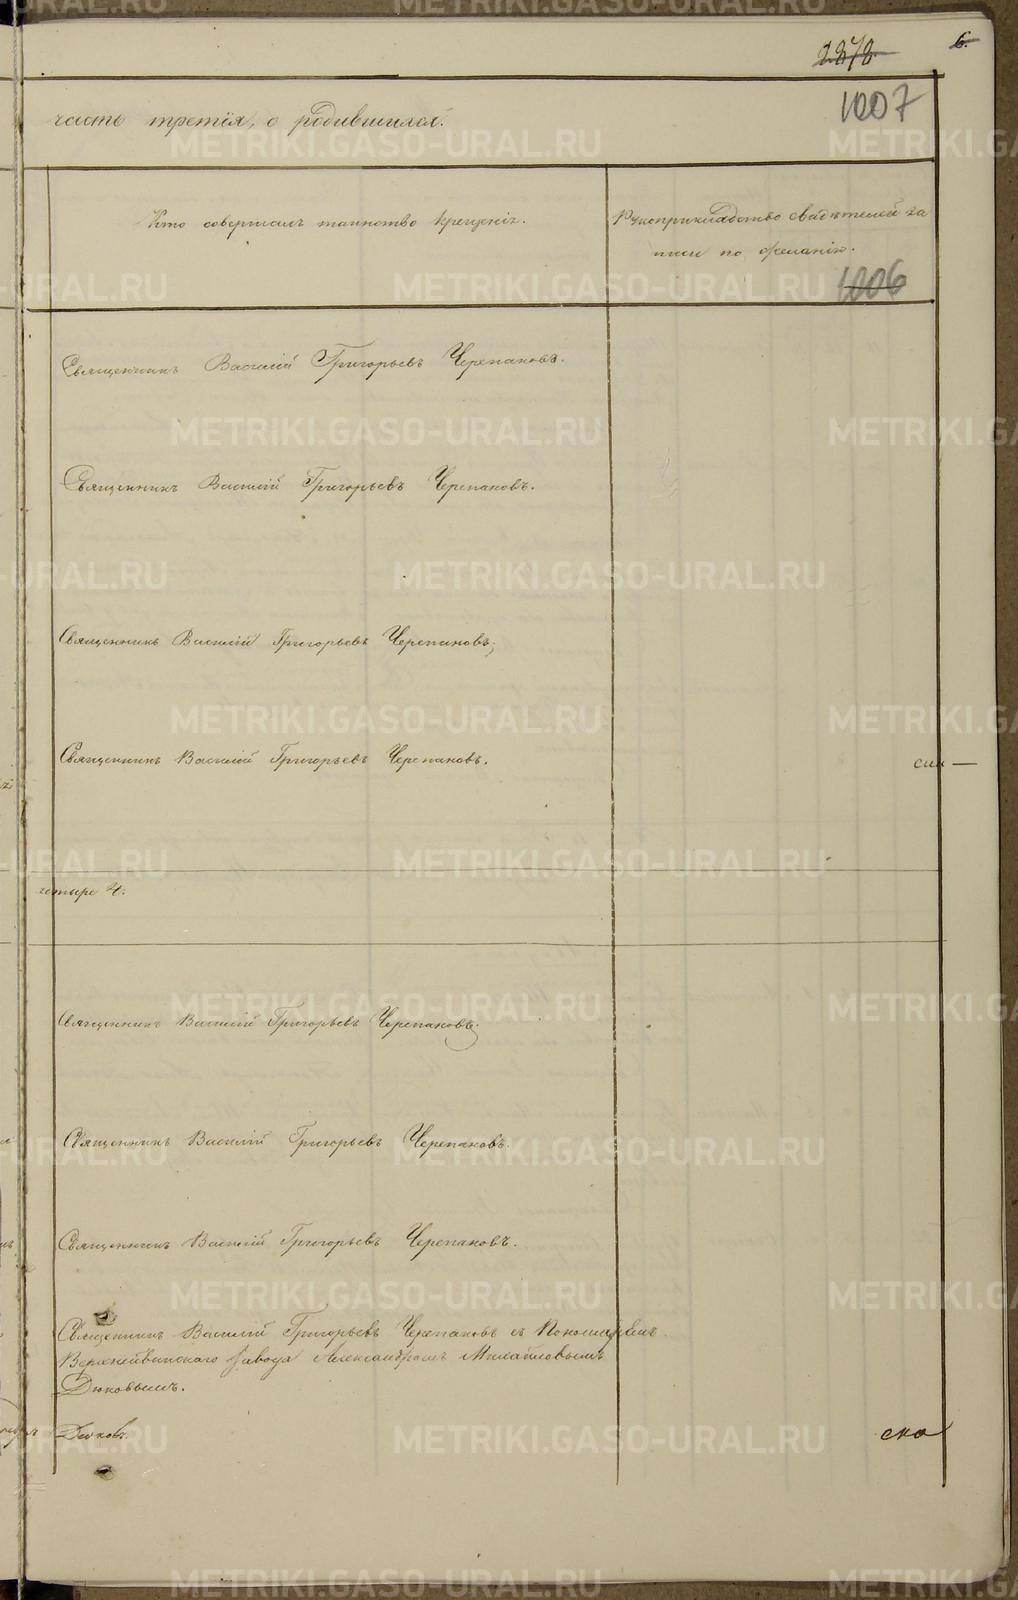 2272 6.
1007
часть третія, о родившихся.
Кто совершилъ таинство крещенія. Рукоприкладство свидѣтелей за
писи по желанію.
1006
Священникъ Василій Григорьевъ Черепановъ.
Священникъ Василій Григорьевъ Черепановъ.
Священникъ Василій Григорьевъ Черепановъ,
Священникъ Василій Григорьевъ Черепановъ.
сим —
четыре 4.
Священникъ Василій Григорьевъ Черепановъ.
Священникъ Василій Григорьевъ Черепановъ.
Священникъ Василій Григорьевъ Черепановъ.
Священникъ Василій Григорьевъ Черепановъ съ Пономаремъ
Верхнейвинскаго Завода Александромъ Михайловымъ
Дюковымъ.
Дюковъ. ско
METRIKI.GASO-URAL.RU